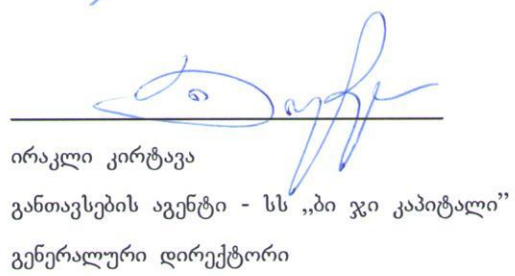 ირაკლი კირტავა
განთავსების აგენტი - სს ,,ბი ჯი კაპიტალი”
გენერალური დირექტორი